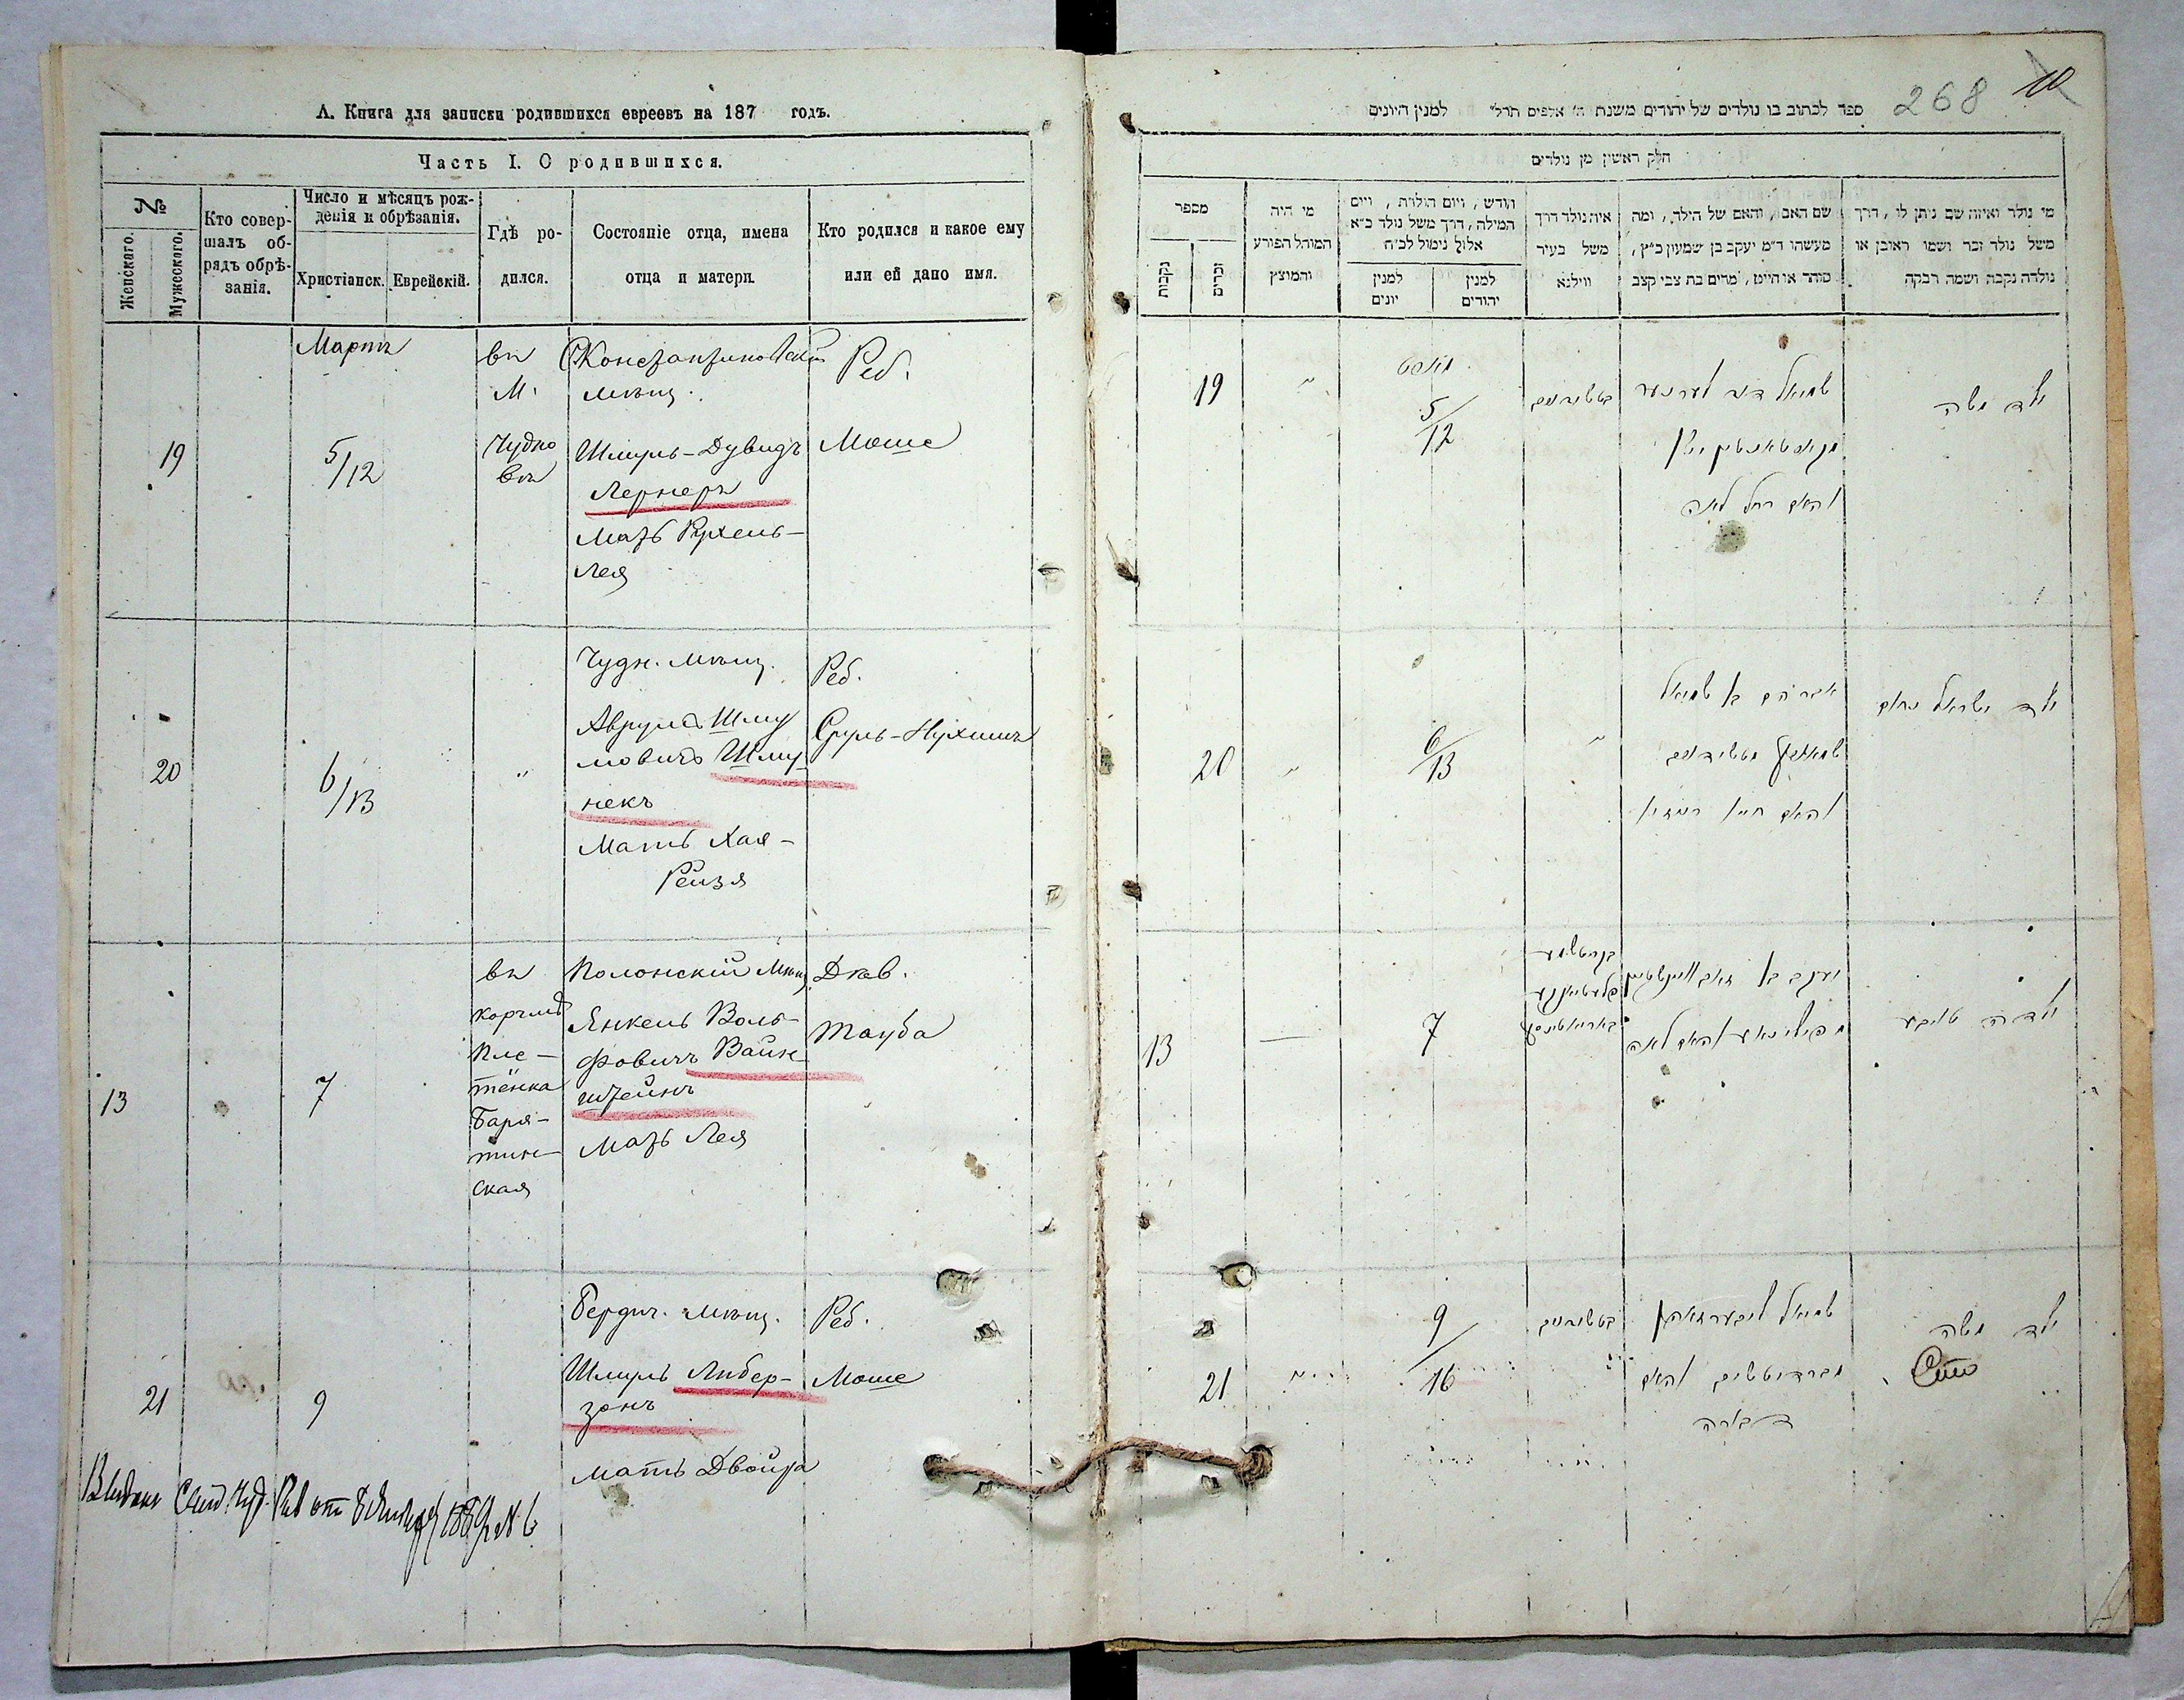 А. Книга для записки родившихся евреевъ на 187 годъ.
Часть I. О родившихся.
№
Женскаго.
Мужескаго.
Кто совер-
шалъ об-
рядъ обрѣ-
занія.
Число и мѣсяцъ рож-
денія и обрѣзанія.
Христіанск.
Еврейскій.
Гдѣ ро-
дился.
Состояніе отца, имена
отца и матери.
Кто родился и какое ему
или ей дано имя.
Мартъ
19
5/12
въ
М.
Чудно
въ
Константиновскій
мѣщ.
Шмуль-Дувидъ
Лернеръ
Мать Рухель-
Лея
Реб.
Моше
20
6/13
"
Чудн. мѣщ.
Аврумъ Шму
мовичъ Шму-
некъ
Мать Хая-
Рейзя
Реб.
Сруль-Нухимъ
13
7
въ
корчмѣ
Пле-
тёнка
Баря-
тин-
ская
Полонскій мѣщ.
Янкель Воль-
фовичъ Вайн-
штейнъ
Мать Лея
Дѣв.
Тауба
21
9
Бердич. мѣщ.
Шмуль Либер-
зонъ
Мать Двойра
Реб.
Моше
268
10
ספר לכתוב בו נולדים של יהודים משנת ה' אלפים תרל" למנין היונים
חלק ראשון מן נולדים
מספר
נקבות
זכרים
מי היה
המוהל הפורע
והמוצץ
חודש, ויום הולדת, ויום
המילה, דרך משל נולד כ"א
אלול נימול לכ"ח
למנין
יונים
למנין
יהודים
איה נולד דרך
משל בעיר
ווילנא
שם האב, והאם של הילד, ומה
מעשהו ד"מ יעקב בן שמעון כ"ץ,
סוחר או חייט, מרים בת צבי קצב
מי נולד ואיזה שם ניתן לו, דרך
משל נולד זכר ושמו ראובן או
נולדה נקבה ושמה רבקה
19
"
5/12
שמואל דוד לערנער
והאם רחל לאה
ילד משה
20
"
6/13
"
אברהם בן שמואל
ילד ישראל נחום
13
—
7
יעקב בן זאב וויינשטיין
והאם לאה
ילדה טויבע
21
"
9/16
שמואל ליבערזאהן
והאם
דבורה
ילד משה